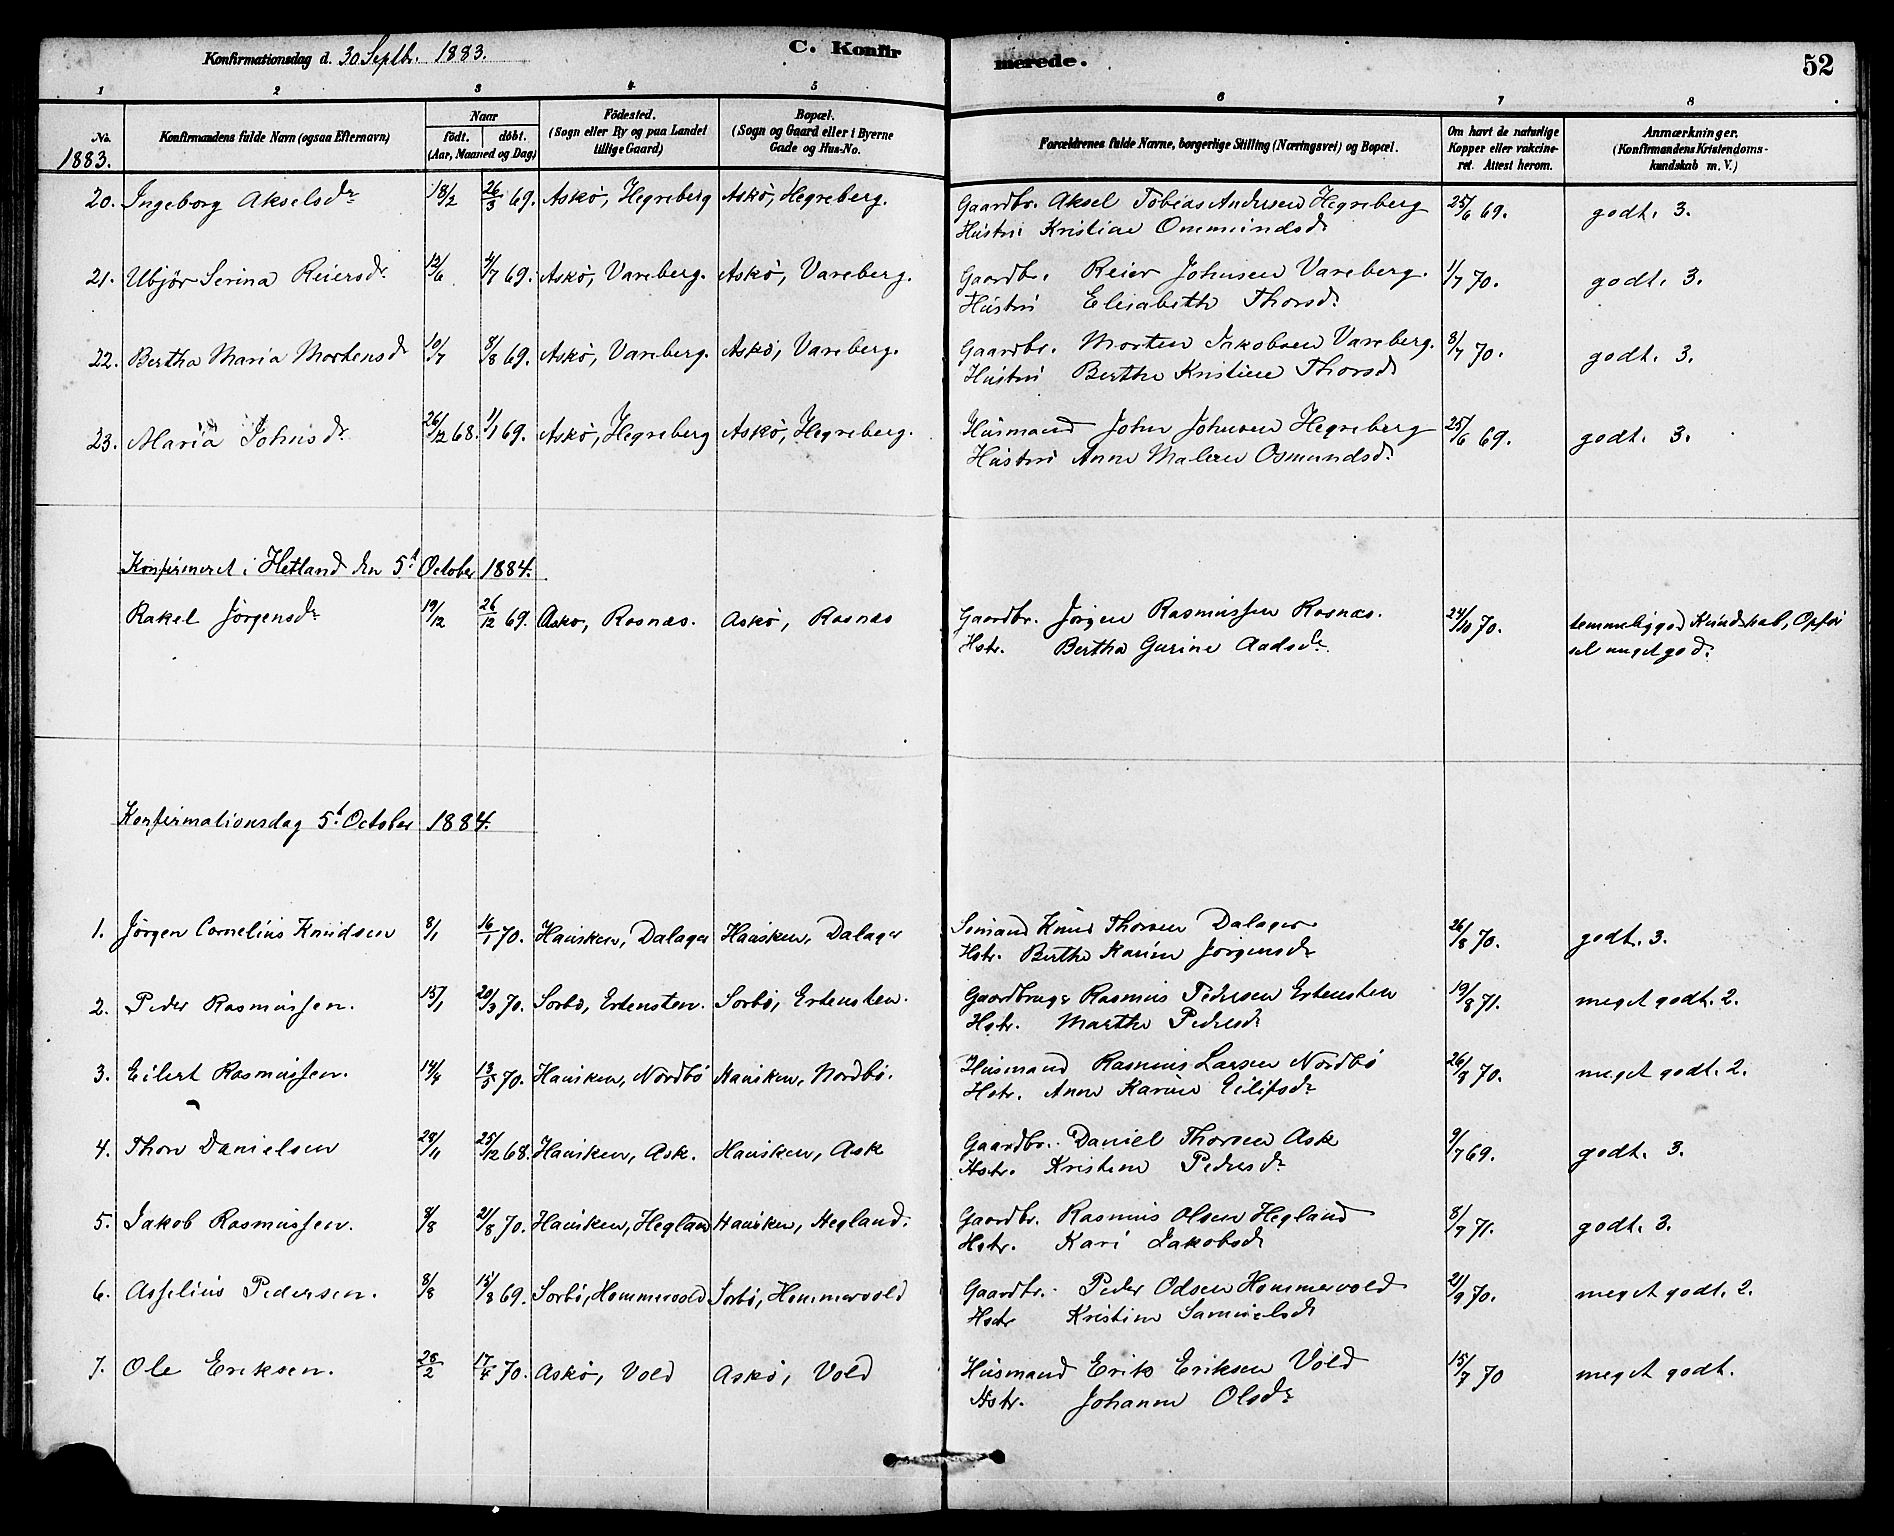 Konfirmationsdag d. 30 Septbr. 1883.
C. Konfirmerede.
52
1 2 3 4 5 6 7 8
No. Konfirmandens fulde Navn (ogsaa Efternavn) Naar født. døbt. (Aar, Maaned og Dag) Födested. (Sogn eller By og paa Landet tillige Gaard) Bopæl. (Sogn og Gaard eller i Byerne Gade og Hus-No. Forældrenes fulde Navne, borgerlige Stilling (Næringsvei) og Bopæl. Om havt de naturlige Kopper eller vakcineret. Attest herom. Anmærkninger. (Konfirmandens Kristendomskundskab m. V.)
1883.
20. Ingeborg Akselsdr 18/2 26/3 69. Askø, Hegreberg Askø, Hegreberg. Gaardbr. Aksel Tobias Andersen Hegreberg 25/6 69. godt. 3.
Hustru Kristine Ommundsdr
21. Ubjør Serina Reiersdr. 12/6 4/7 69. Askø, Vareberg. Askø, Vareberg. Gaardbr. Reier Johnsen Vareberg. 1/7 70. godt. 3.
Hustru Elisabeth Thorsdr
22. Bertha Maria Mortensdr 10/7 8/8 69. Askø, Vareberg. Askø, Vareberg. Gaardbr. Morten Jakobsen Vareberg. 8/7 70. godt. 3.
Hustru Berthe Kristine Thorsdr
23. Maria Johnsdr 26/12 68. 1/1 69. Askø, Hegreberg Askø, Hegreberg. Husmand John Johnsen Hegreberg 25/6 69. godt. 3.
Hustru Anne Malene Osmundsdr
Konfirmeret i Hetland den 5t October 1884.
Rakel Jörgensdr 19/12 26/12 69. Askø, Rosnæs. Askø, Rosnæs Gaardbr. Jörgen Rasmussen Rosnæs. 24/10 70. temmelig god Kundskab, Opför
Hstr. Bertha Gurine Aadsdr sel meget god.
Konfirmationsdag 5t October 1884.
1. Jørgen Cornelius Knudsen 8/1 16/1 70. Hausken, Dalager Hausken, Dalager Sömand Knud Thorsen Dalager 26/8 70. godt. 3.
Hstr. Berthe Karine Jörgensdr
2. Peder Rasmussen. 15/1 20/3 70. Sorbø, Ertensten. Sorbø, Ertensten. Gaardbruger Rasmus Pedersen Ertensten 19/8 71. meget godt. 2.
Hstr. Marthe Pedersdr
3. Eilert Rasmussen. 14/4 13/5 70. Hausken, Nordbö Hausken, Nordbö. Husmand Rasmus Larsen Nordbö 26/8 70. meget godt. 2.
Hstr. Anne Karine Eilifsdr
4. Thore Danielsen 28/11 25/12 68. Hausken, Ask. Hausken, Ask Gaardbr. Daniel Thorsen Ask 9/7 69. godt. 3.
Hstr. Kristine Pedersdr
5. Jakob Rasmussen. 8/8 21/8 70. Hausken, Hegland Hausken, Hegland. Gaardbr. Rasmus Olsen Hegland 8/7 71. godt. 3.
Hstr. Kari Jakobsdr
6. Asselius Pedersen. 8/8 15/8 69. Sorbø, Hommervold Sorbø, Hommervold Gaardbr. Peder Odsen Hommervold 21/9 70. meget godt. 2.
Hstr Kristine Samuelsdr
7. Ole Eriksen. 28/2 17/4 70. Askø, Vold Askø, Vold Husmand Erik Eriksen Vold 15/7 70 meget godt.
Hstr. Johanne Olsdr